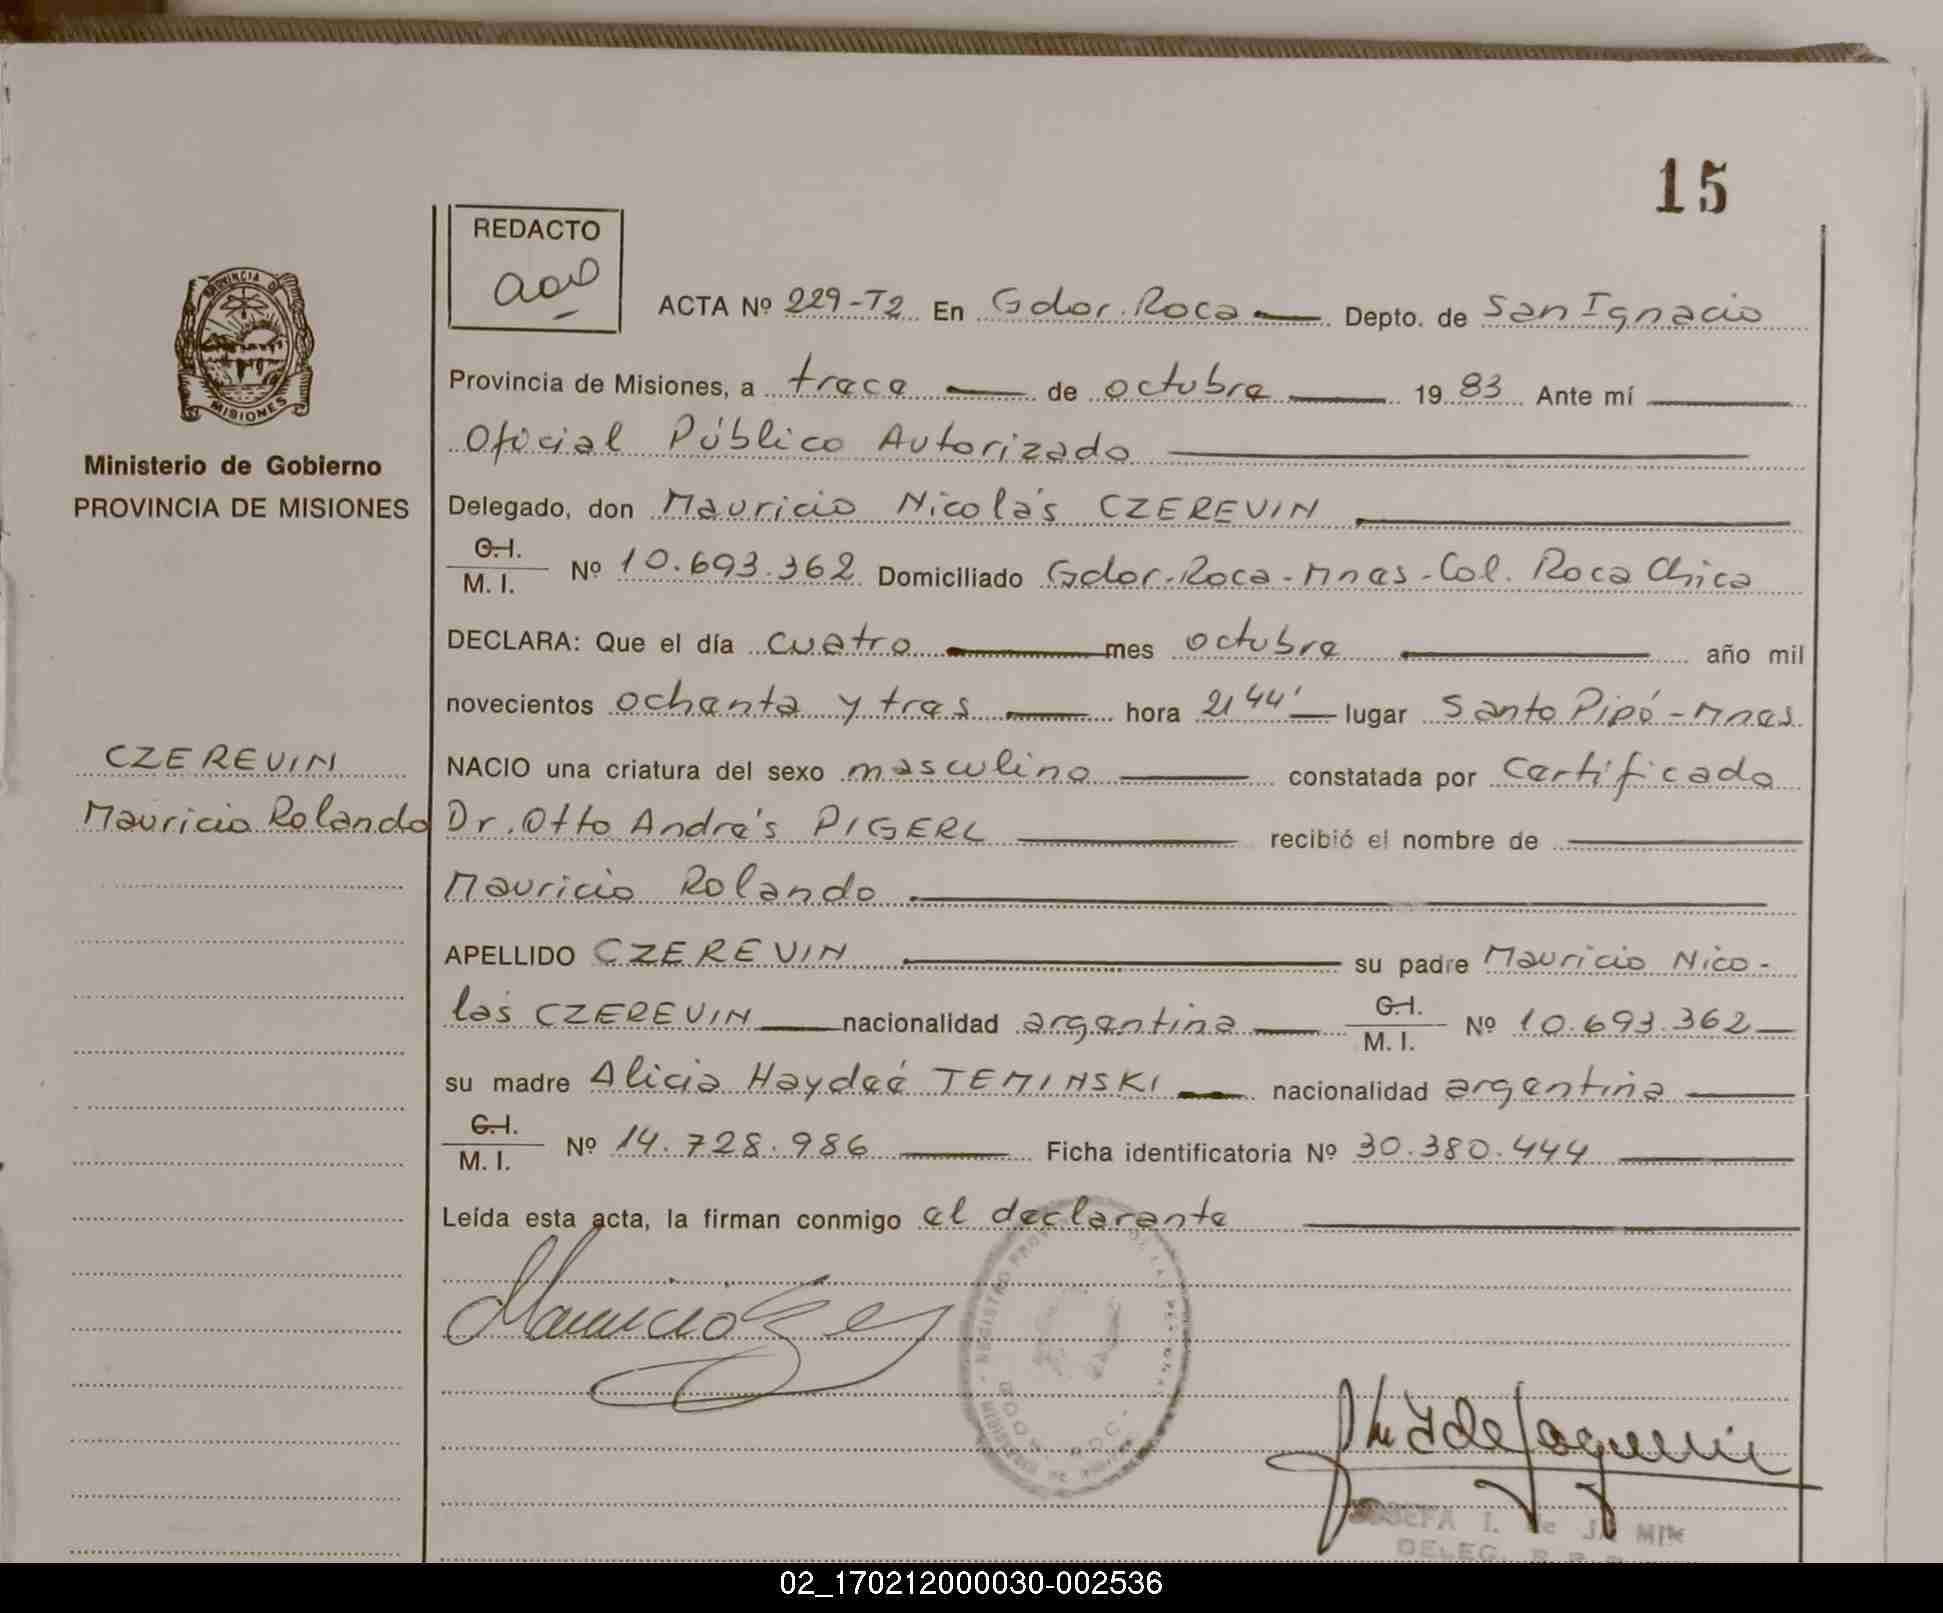 15
REDACTO
PROVINCIA D
MISIONES
Ministerio de Gobierno
PROVINCIA DE MISIONES
ACTA Nº 229-T2 En Gdor. Roca Depto. de San Ignacio
Provincia de Misiones, a trece de octubre 1983 Ante mí
Oficial Público Autorizado
Delegado, don Mauricio Nicolás CZEREVIN
C.I.
M. I. Nº 10.693.362 Domiciliado Gdor. Roca - Mnes - Col. Roca Chica
DECLARA: Que el día cuatro mes octubre año mil
novecientos ochenta y tres hora 21 44' lugar Santo Pipó - Mnes.
CZEREVIN
Mauricio Rolando
NACIO una criatura del sexo masculino constatada por Certificado
Dr. Otto Andrés PIGERL recibió el nombre de
Mauricio Rolando
APELLIDO CZEREVIN su padre Mauricio Nico-
lás CZEREVIN nacionalidad argentina C.I.
M. I. Nº 10.693.362
su madre Alicia Haydeé TEMINSKI nacionalidad argentina
C.I.
M. I. Nº 14.728.986 Ficha identificatoria Nº 30.380.444
Leída esta acta, la firman conmigo el declarante
REGISTRO
JOSEFA I. de J
DELEG.
02_170212000030-002536